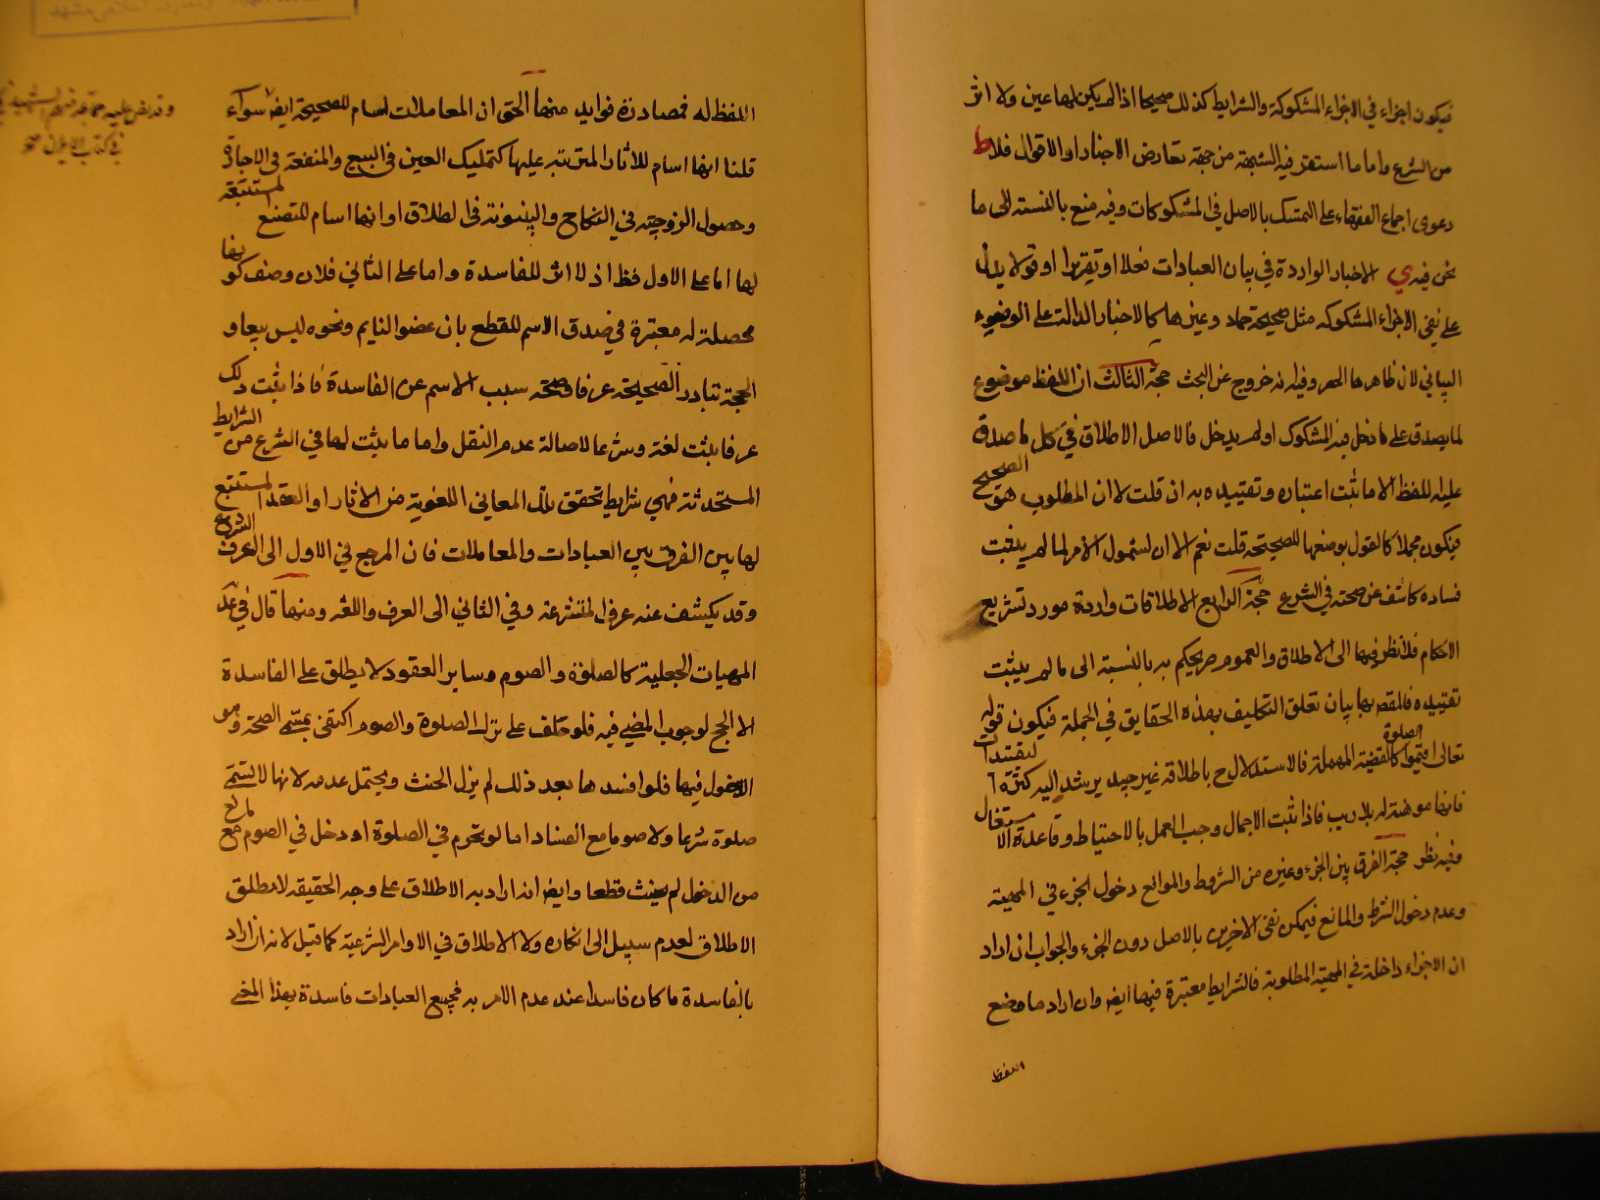 فيكون اجزاء في الاجزاء المشكوكة والشرايط كذلك صحيحا اذا لم يكن لها عين ولا اثر
من الشرع واما ما استقر فيه الشبهة من جهة تعارض الاخبار او الاقوال فلا
دعوى اجماع الفقهاء على التمسك بالاصل في المشكوكات وفيه منع بالنسبة الى ما
نحن فيه الاخبار الواردة في بيان العبادات فعلا او تقريرا او قولا يدل
على نفي الاجزاء المشكوكة مثل صحيحة حماد وغيرها كالاخبار الدالة على الوضوء
البياني لان ظاهرها الحصر وفيه انه خروج عن البحث حجة الثالث ان اللفظ موضوع
لما يصدق على ما دخل فيه المشكوك او لم يدخل فالاصل الاطلاق في كل ما صدق
عليه اللفظ الا ما ثبت اعتباره وتقييده به ان قلت لا ان المطلوب هو الصحيح
فيكون مجملا كالقول بوضعها للصحيحة قلت نعم الا ان لشمول الامر لما لم يثبت
فساده كاشف عن صحته في الشرع حجة الرابع الاطلاقات واردة مورد تشريع
الاحكام فلا نظر فيها الى الاطلاق والعموم حتى يحكم به بالنسبة الى ما لم يثبت
تقييده فالمقصد بها بيان تعلق التكليف بهذه الحقايق في الجملة فيكون قوله
تعالى اقيموا الصلوة كالقضية المهملة فالاستدلال ح باطلاقه غير جيد يرشد اليه كثرة التقييدات
فانها موهنة له بلا ريب فاذا ثبت الاجمال وجب العمل بالاحتياط وقاعدة الاشتغال
وفيه نظر حجة الفرق بين الجزء وغيره من الشروط والموانع دخول الجزء في المهية
وعدم دخول الشرط والمانع فيمكن نفي الاخيرين بالاصل دون الجزء والجواب ان اراد
ان الاجزاء داخلة في المهية المطلوبة فالشرايط معتبرة فيها ايض وان اراد ما وضع
اللفظ
اللفظ له فمصادرة فوايد منها الحق ان المعاملات اسام للصحيحة ايض سواء
قلنا انها اسام للاثار المترتبة عليها كتمليك العين في البيع والمنفعة في الاجارة
وحصول الزوجية في النكاح والبينونة في الطلاق او انها اسام للتصنع المستتبعة
لها اما على الاول فظ اذ لا اثر للفاسدة واما على الثاني فلان وصف كونها
محصلة له معتبرة في صدق الاسم للقطع بان عضو النايم ونحوه ليس بيعا و
الحجة تبادر الصحيحة عرفا وصحة سلب الاسم عن الفاسدة فاذا ثبت ذلك
عرفا يثبت لغة وشرعا لاصالة عدم النقل واما ما يثبت لها في الشرع من الشرايط
المستحدثة فهي شرايط تحقق تلك المعاني اللغوية من الاثار او العقد المستتبع
لها بين الفرق بين العبادات والمعاملات فان المرجع في الاول الى العرف الشرع
وقد يكشف عنه عرف المتشرعة وفي الثاني الى العرف واللغة ومنها قال في عد
المهيات الجعلية كالصلوة والصوم وساير العقود لا يطلق على الفاسدة
الا الحج لوجوب المضي فيه فلو حلف على ترك الصلوة والصوم اكتفى بمسمى الصحة وهو
الدخول فيها فلو افسدها بعد ذلك لم يزل الحنث ويحتمل عدمه لانها لا تسمى
صلوة شرعا ولا صوما مع الفساد اما لو تحرم في الصلوة او دخل في الصوم مع المانع
من الدخول لم يحنث قطعا وايض انه اراد به الاطلاق على وجه الحقيقة لا مطلق
الاطلاق لعدم سبيل الى انكاره ولا الاطلاق في الاوامر الشرعية كما قيل لانه ان اراد
بالفاسدة ما كان فاسدا عند عدم الامر به فجميع العبادات فاسدة بهذا المعنى
وقد نص عليه جماعة منهم الشهيد
في كتاب الايمان